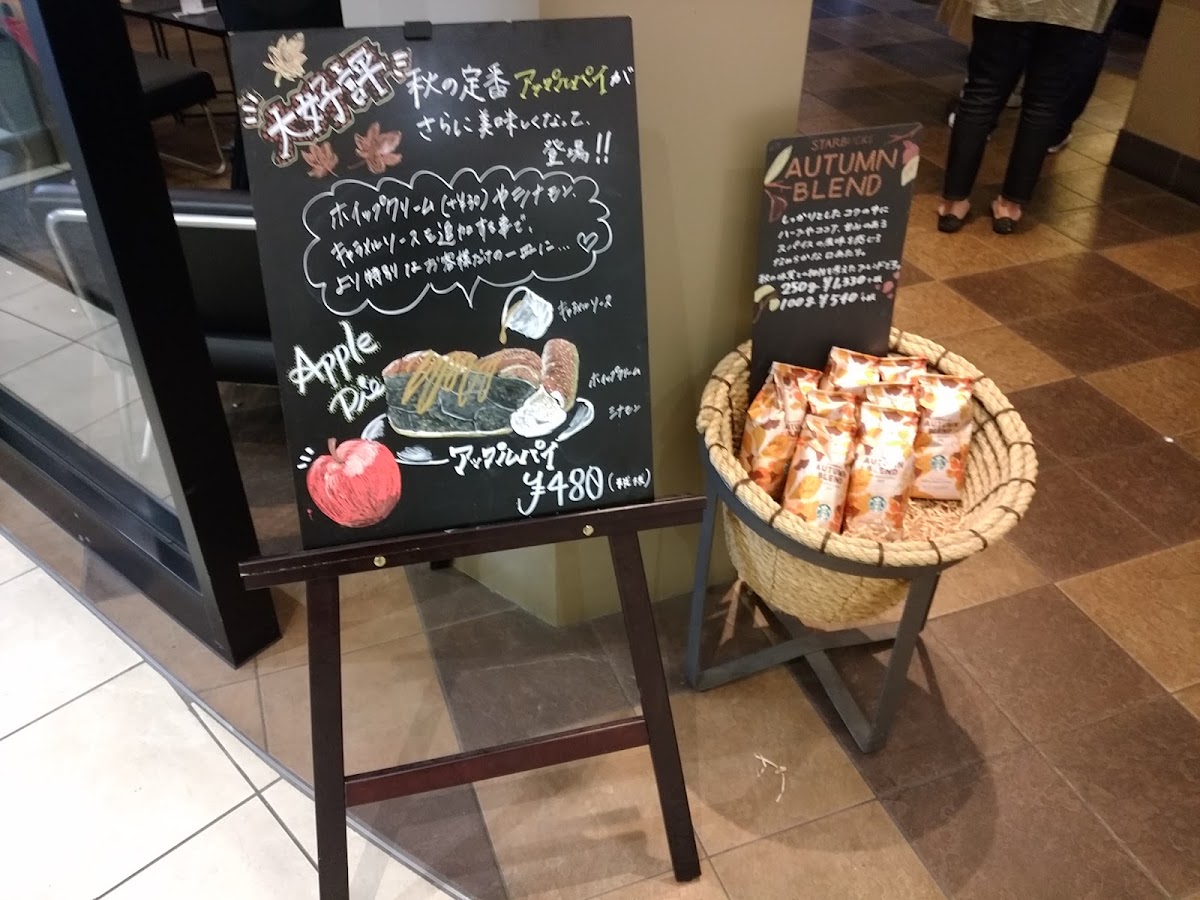 大好評
秋の定番 アップルパイが
さらに美味しくなって、
登場!!
ホイップクリーム(+¥30)やシナモン、
キャラメルソースを追加する事で、
より特別なお客様だけの一皿に…♡
キャラメルソース
Apple
Pie
ホイップクリーム
シナモン
アップルパイ
¥480(+税)
STARBUCKS
AUTUMN
BLEND
しっかりとしたコクの中に
ハーブやココア、甘みのある
スパイスの風味を感じる
なめらかな口あたり。
250g ¥1,330+税
100g ¥540+税
AUTUMN
BLEND
AUTUMN
BLEND